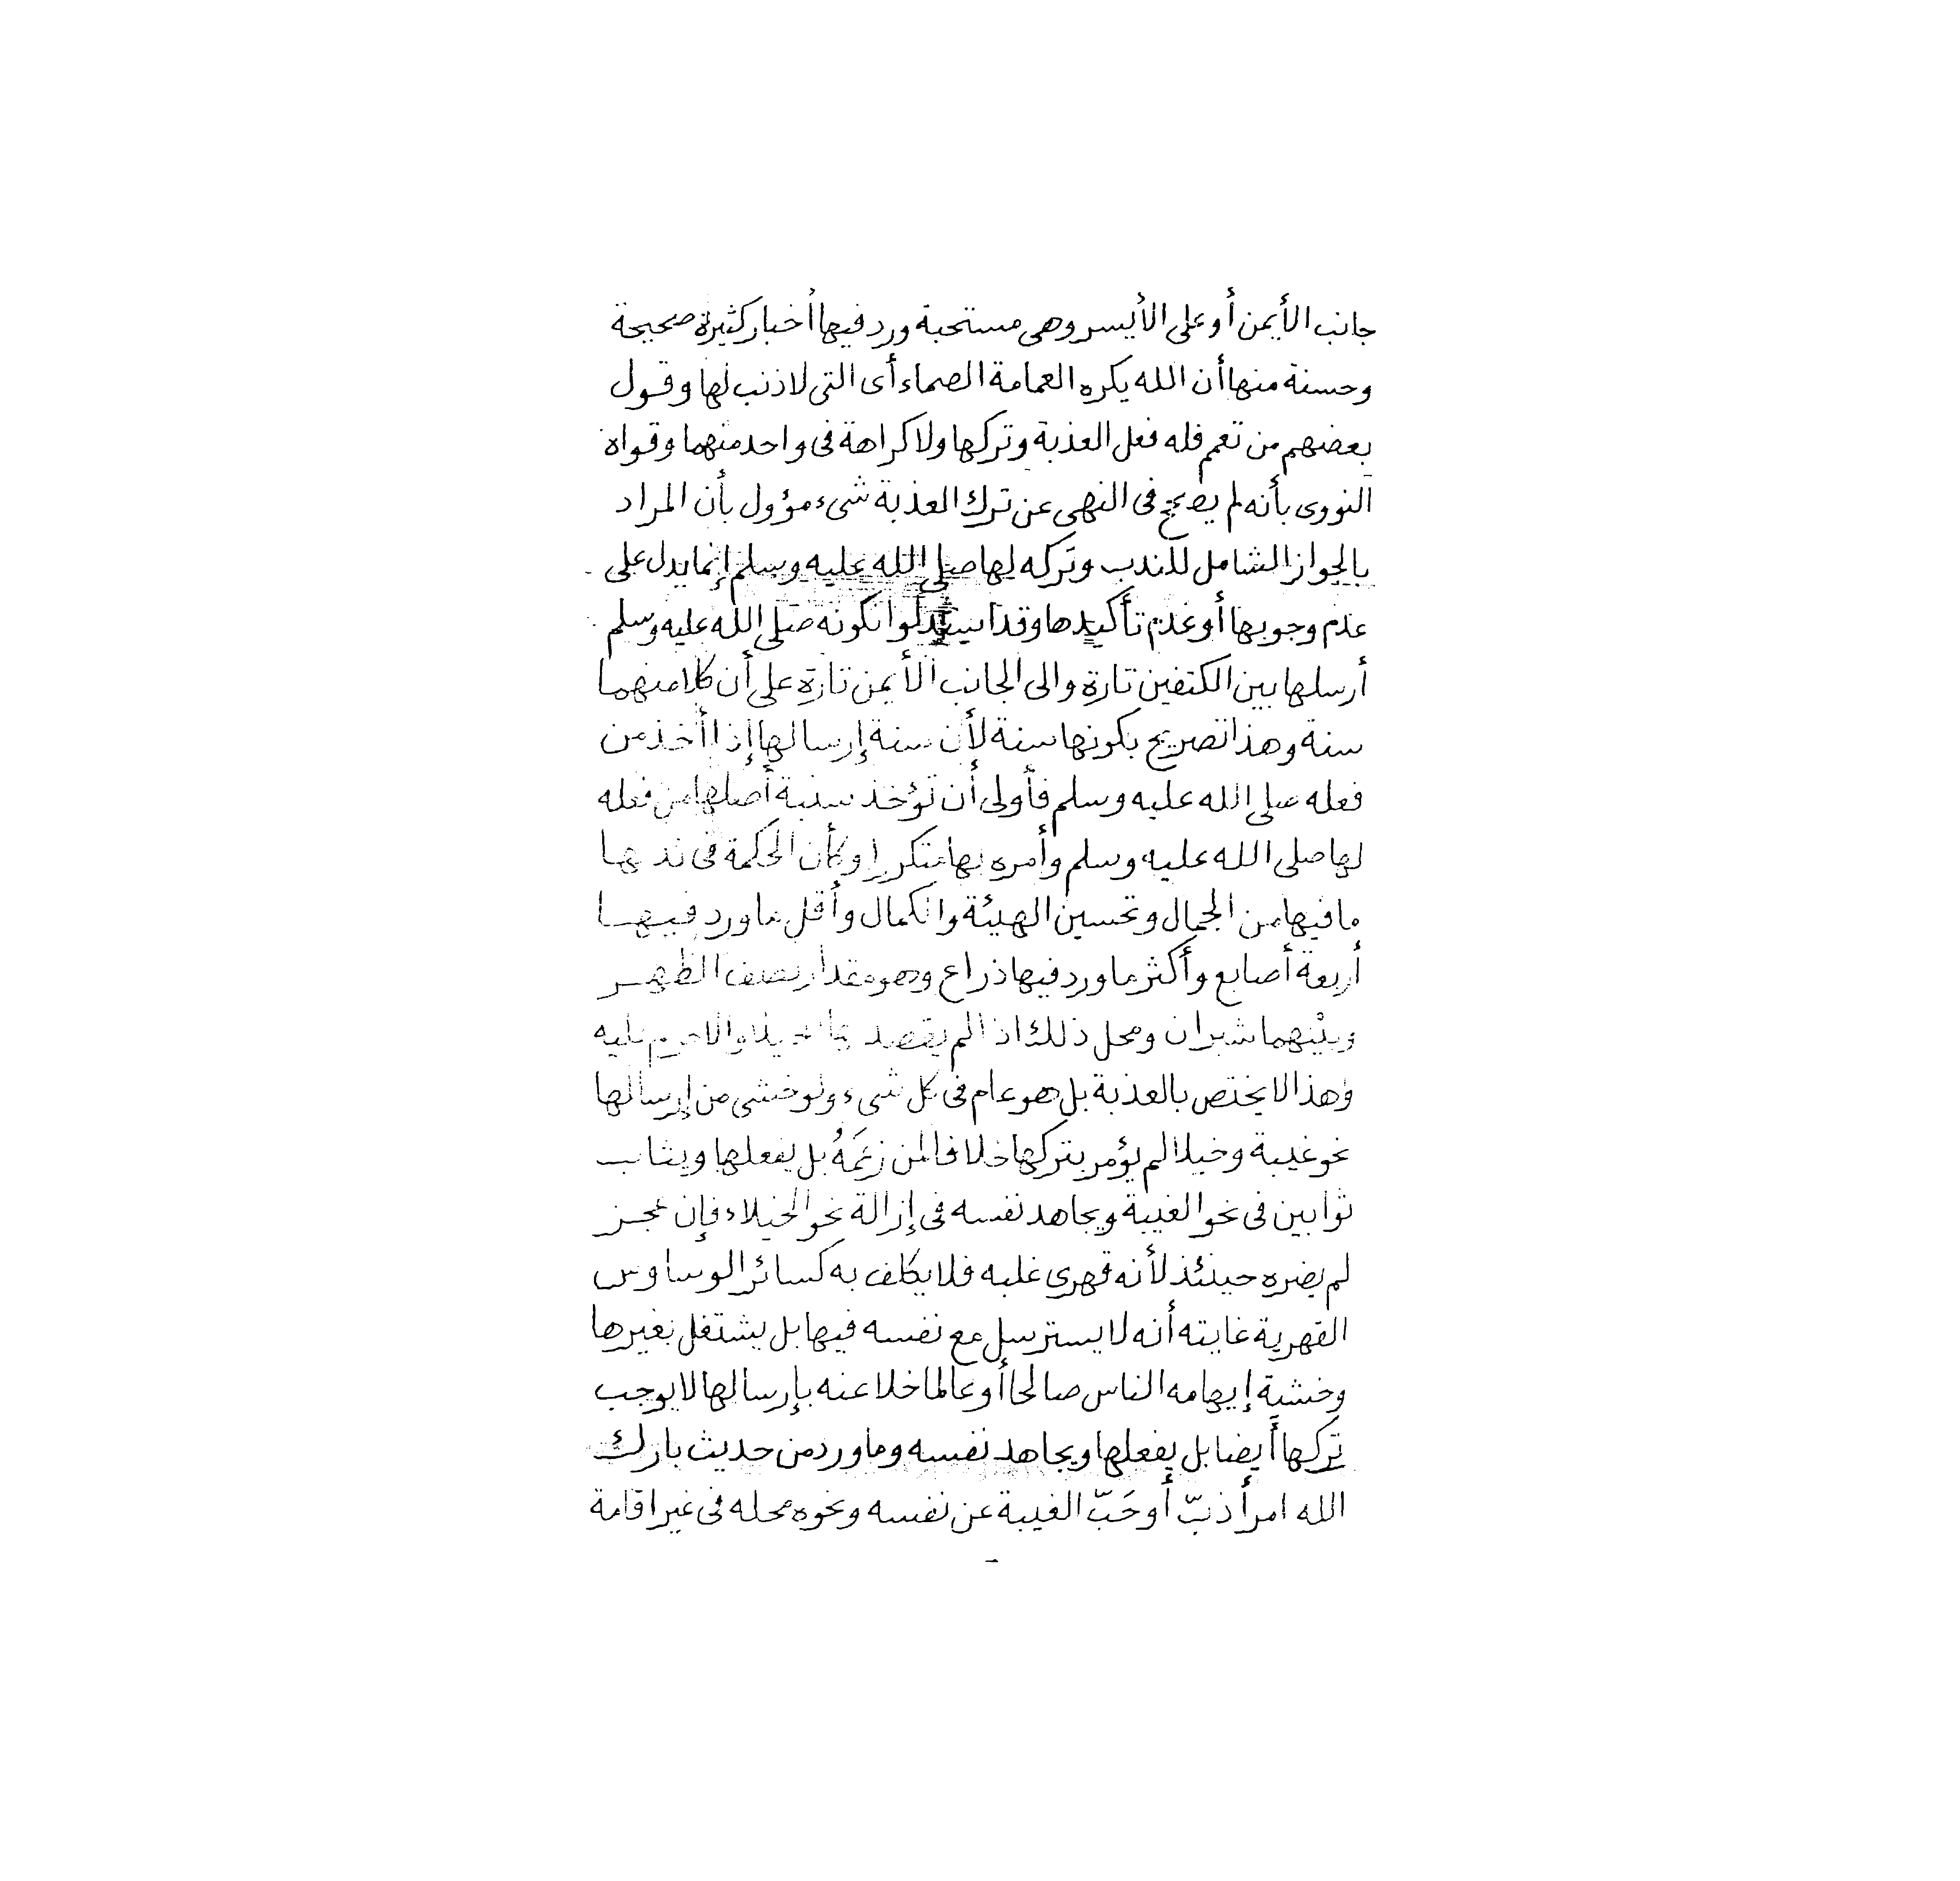 جانب الأيمن أو على الأيسر وهى مستحبة ورد فيها أخبار كثيرة صحيحة
وحسنة منها أن الله يكره العمامة الصماء أى التى لا ذنب لها وقول
بعضهم من تعمم فله فعل العذبة وتركها ولا كراهة فى واحد منهما وقواه
النووى بأنه لم يصح فى النهى عن ترك العذبة شىء مؤول بأن المراد
بالجواز الشامل للندب وتَركه لها صلى الله عليه وسلم إنما يدل على
عدم وجوبها أو عدم تأكيدها وقد استدلوا بكونه صلى الله عليه وسلم
أرسلها بين الكتفين تارة والى الجانب الأيمن تارة على أن كلا منهما
سنة وهذا تصريح بكونها سنة لأن سنة إرسالها إذا أخذ من
فعله صلى الله عليه وسلم فأولى أن تؤخذ سنية أصلها من فعله
لها صلى الله عليه وسلم وأمره بها متكررا وكأن الحكمة فى ندبها
ما فيها من الجمال وتحسين الهيئة والكمال وأقل ما ورد فيها
أربعة أصابع وأكثر ما ورد فيها ذراع وهو مقدار نصف الظهر
وبيْنهما شبران ومحل ذلك اذا لم يقصد بها خيلا والا حرم عليه
وهذا لا يختص بالعذبة بل هو عام فى كل شىء ولو خشى من إرسالها
نحو غيبة وخيلا لم يؤمر بتركها خلافا لمن زعَمَهُ بل يفعلها ويثاب
ثوابين فى نحو الغيبة ويجاهد نفسه فى إزالة نحو الخيلاء فإن عجز
لم يضره حينئذ لأنه قهرى غلبه فلا يكلف به كسائر الوساوس
القهرية غايته أنه لا يسترسل مع نفسه فيها بل يشتغل بغيرها
وخشية إيهامه الناس صالحا أو عالما خلا عنه بإرسالها لا يوجب
تركها أيضا بل يفعلها ويجاهد نفسه وما ورد من حديث بارك
الله امرأ ذبّ أو حَبّ الغيبة عن نفسه ونحوه محله فى غير اقامة